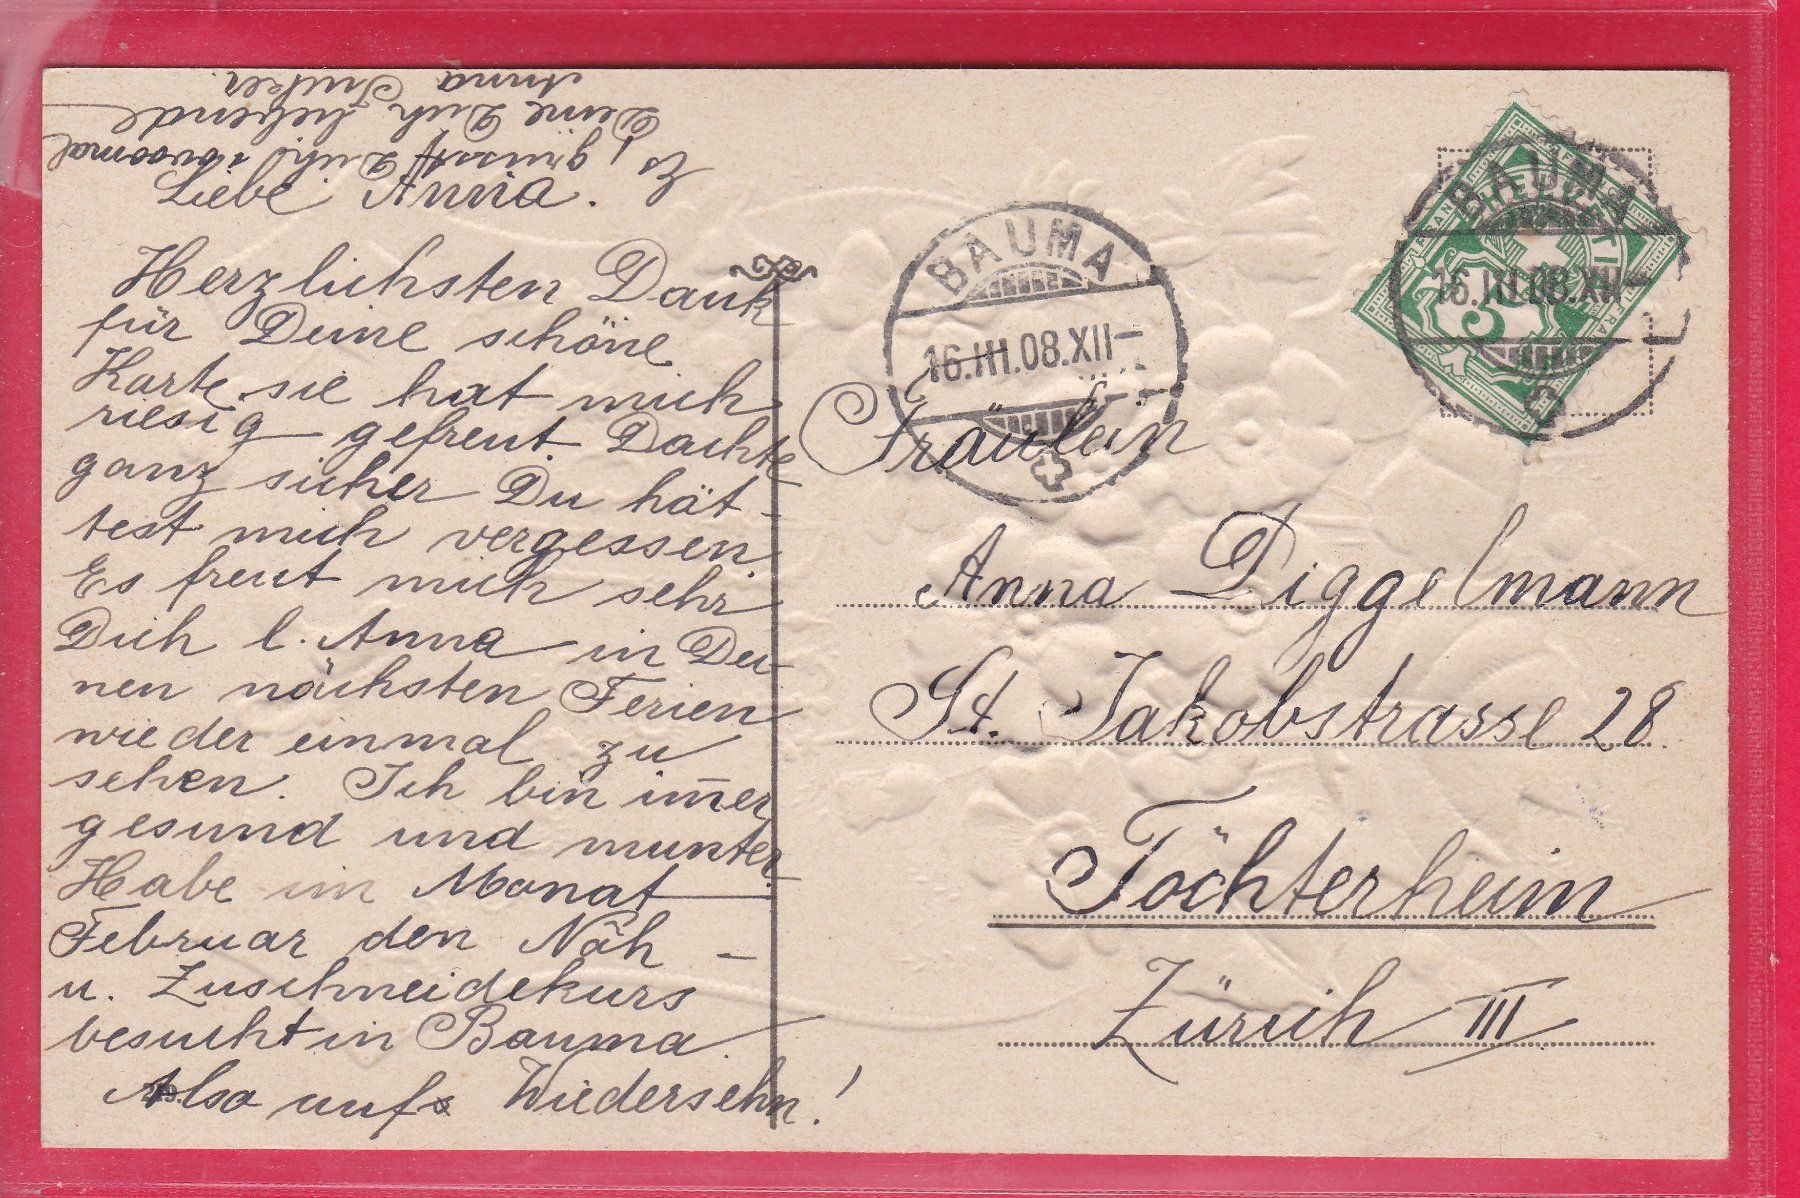 Liebe Anna.
Herzlichsten Dank
für Deine schöne
Karte sie hat mich
riesig gefreut. Dachte
ganz sicher Du hät-
test mich vergessen.
Es freut mich sehr
Dich l. Anna in Dei-
nen nächsten Ferien
wieder einmal zu
sehen. Ich bin im̅er
gesund und munter.
Habe im Monat
Februar den Näh-
u. Zuschneidekurs
besucht in Bauma.
Also aufs Wiedersehn!
Es grüsst Dich
Deine Dich liebende
Anna
BAUMA
16.III.08.XII-
BAUMA
16.III.08.XII-
HELVETIA
FRANCO
5
Fräulein
Anna Diggelmann
St. Jakobstrasse 28.
Töchterheim
Zürich III